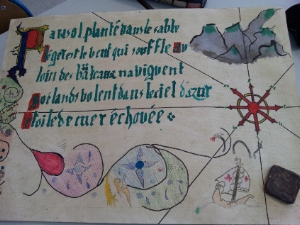 Parasol planté dans le sable
Léger est le vent qui souffle Au
loin des Bâteaux naviguent
Goelands volent dans le ciel d'azur
Etoile de mer échouée